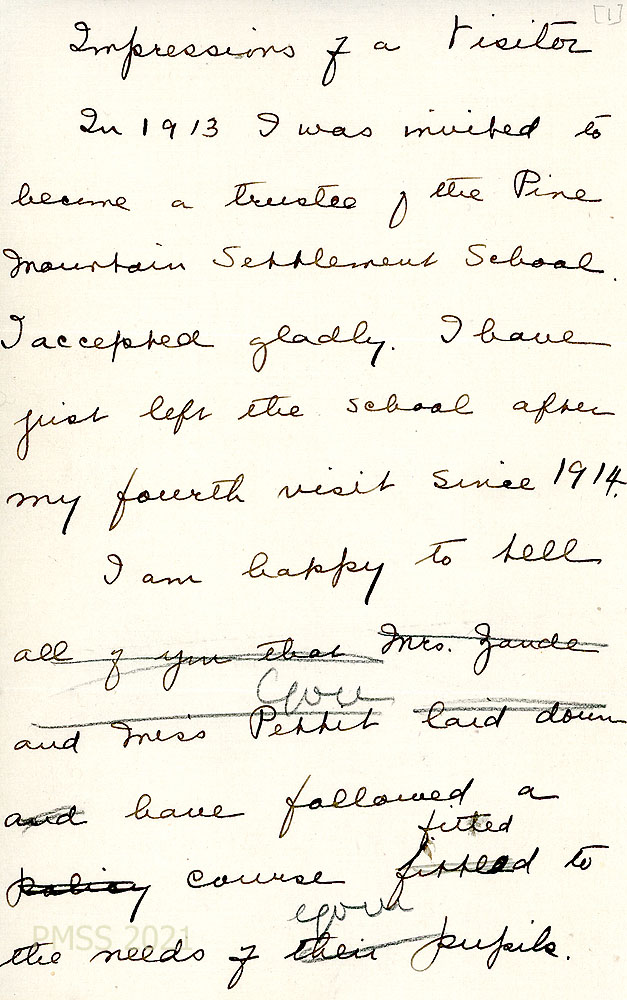 [1]
Impressions of a Visitor
In 1913 I was invited to
become a trustee of the Pine
Mountain Settlement School.
I accepted gladly. I have
just left the school after
my fourth visit since 1914.
I am happy to tell
all of you that Mrs. Zande
you
and Miss Pettit laid down
and have followed a
fitted
policy course fitted to
your
the needs of their pupils.
PMSS 2021